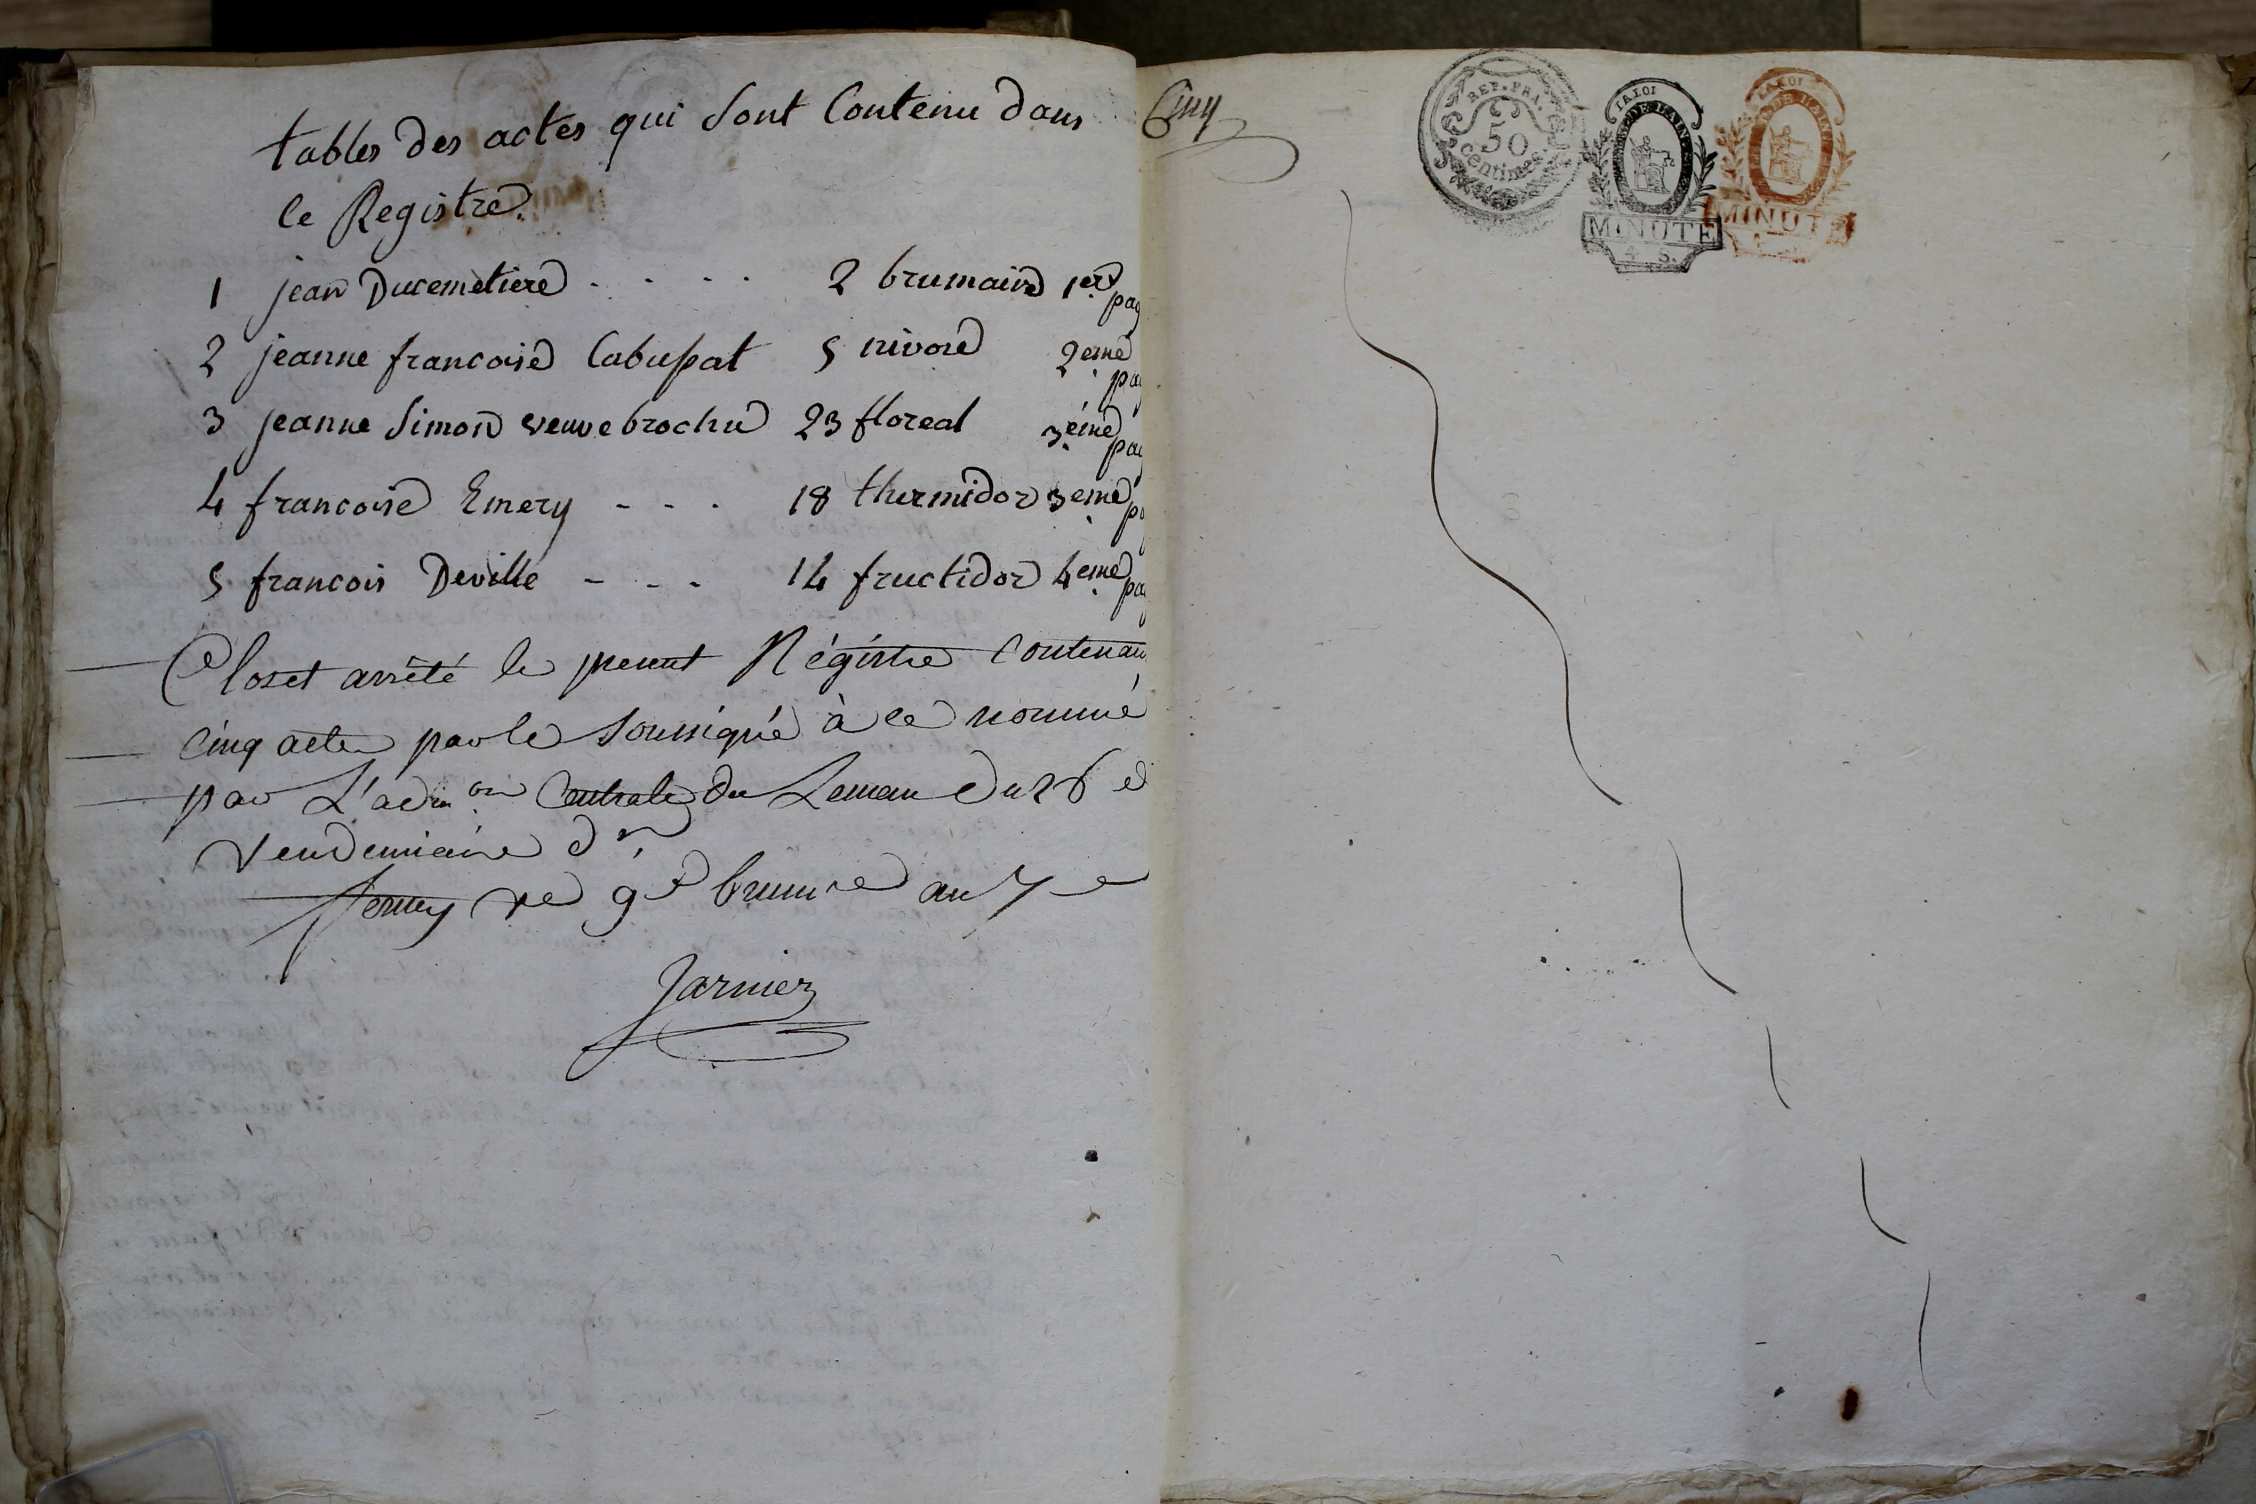 tables des actes qui sont Contenu dans
le Registre.
1 jean Ducemetiere - - - - 2 brumaire 1er pag
2 jeanne francoise Cabupat 5 nivose 2eme pag
3 jeanne Simon veuve brochu 23 floreal 3eme pag
4 francoise Emery - - - 18 thermidor 3eme pag
5 francois Deville - - - 14 fructidor 4eme pag
Closet arrêté le present Régistre contenant
cinq actes par le soussigné à ce nommé
par L'adm.on Centrale du Leman du 26 e
vendemiaire d.r
ferney ce 9e brum.re an 7e
Jarnier
Cinq
REP. FRA.
50
centimes.
LA LOI
MINUTE
4 S.
LA LOI
MINUTE